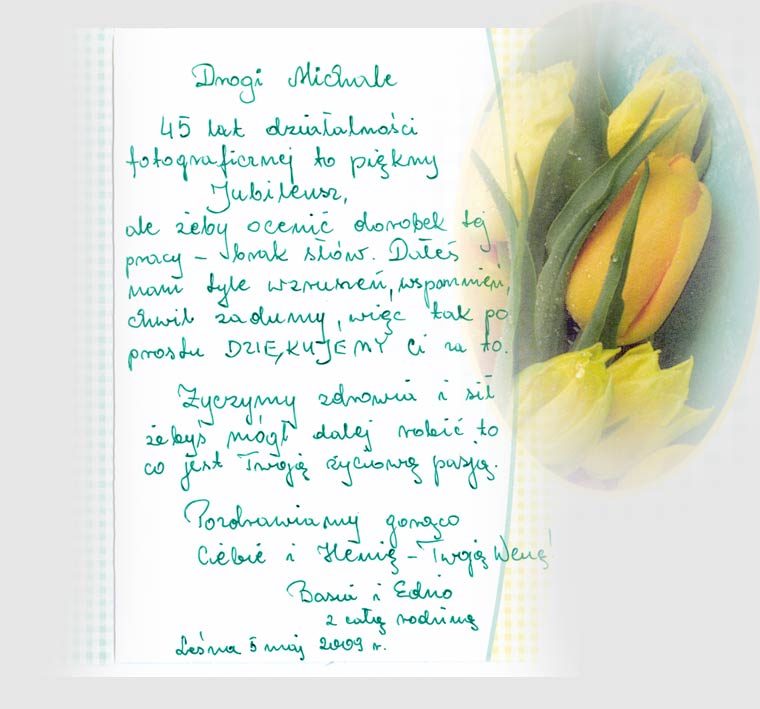 Drogi Michale
45 lat działalności
fotograficznej to piękny
Jubileusz,
ale żeby ocenić dorobek tej
pracy – brak słów. Dałeś
nam tyle wzruszeń, wspomnień,
chwil zadumy, więc tak po
prostu DZIĘKUJEMY Ci za to.
Życzymy zdrowia i sił
żebyś mógł dalej robić to
co jest Twoją życiową pasją.
Pozdrawiamy gorąco
Ciebie i Henię – Twoją Wenę!
Basia i Edzio
z całą rodziną
Leśna 5 maj 2009 r.